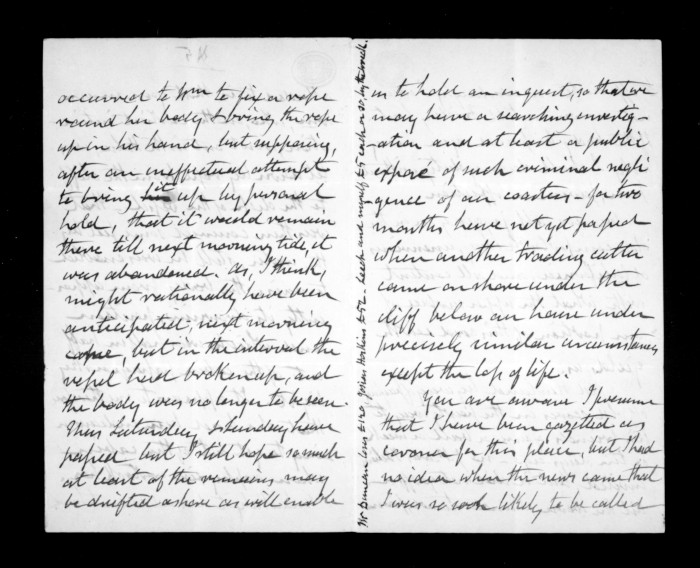 occurred to him to fix a rope
round her body & bring the rope
up in his hand, but supposing,
after an ineffectual attempt
to bring it up by personal
hold, that it would remain
there till next morning tide, it
was abandoned. As, I think,
might rationally have been
anticipated, next morning
came, but in the interval the
vessel had broken up, and
the body was no longer to be seen.
Thus Saturday & Sunday have
passed but I still hope so much
at least of the remains may
be drifted ashore as will enable
us to hold an inquest, so that we
may have a searching investig-
-ation and at least a public
exposé of such criminal negli
-gence of our coasters - for two
months have not yet passed
when another trading cutter
came on shore under the
cliff below our house under
precisely similar circumstances
except the loss of life.
You are aware I presume
that I have been gazetted as
coroner for this place, but I had
no idea when the news came that
I was so soon likely to be called
Mr Duncan loses £120, Hoskin £52 - Leech and myself £5 each or so by the wreck.